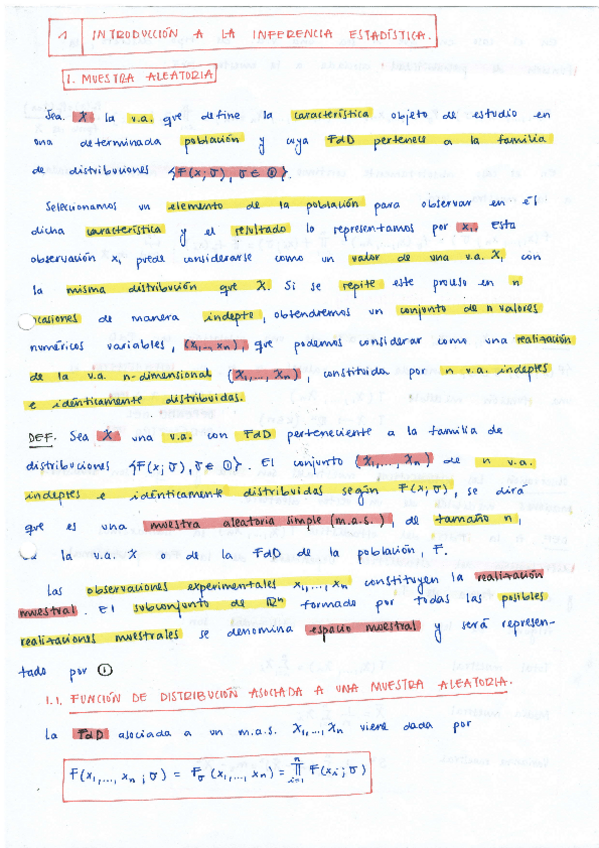 1 INTRODUCCIÓN A LA INFERENCIA ESTADÍSTICA.
1. MUESTRA ALEATORIA
Sea X la v.a. que define la característica objeto de estudio en
una determinada población y cuya FdD pertenece a la familia
de distribuciones {F(x;σ), σ∈Θ}.
Seleccionamos un elemento de la población para observar en él
dicha característica y el resultado lo representamos por x₁. Esta
observación x₁ puede considerarse como un valor de una v.a. X₁ con
la misma distribución que X. Si se repite este proceso en n
ocasiones de manera indepte, obtendremos un conjunto de n valores
numéricos variables, (x₁,..., xₙ), que podemos considerar como una realización
de la v.a. n-dimensional (X₁,..., Xₙ), constituida por n v.a. indeptes
e idénticamente distribuidas.
DEF. Sea X una v.a. con FdD perteneciente a la familia de
distribuciones {F(x;σ), σ∈Θ}. El conjunto (X₁,... Xₙ) de n v.a.
indeptes e idénticamente distribuidas según F(x;σ), se dirá
que es una muestra aleatoria simple (m.a.s.), de tamaño n,
la v.a. X o de la FdD de la población, F.
Las observaciones experimentales x₁,..., xₙ constituyen la realización
muestral. El subconjunto de ℝⁿ formado por todas las posibles
realizaciones muestrales se denomina espacio muestral y será represen-
tado por
1.1. FUNCIÓN DE DISTRIBUCIÓN ASOCIADA A UNA MUESTRA ALEATORIA.
La FdD asociada a un m.a.s. X₁,..., Xₙ viene dada por
F(x₁,..., xₙ; σ) = F_σ (x₁,..., xₙ) = ∏ⁿᵢ₌₁ F(xᵢ; σ)